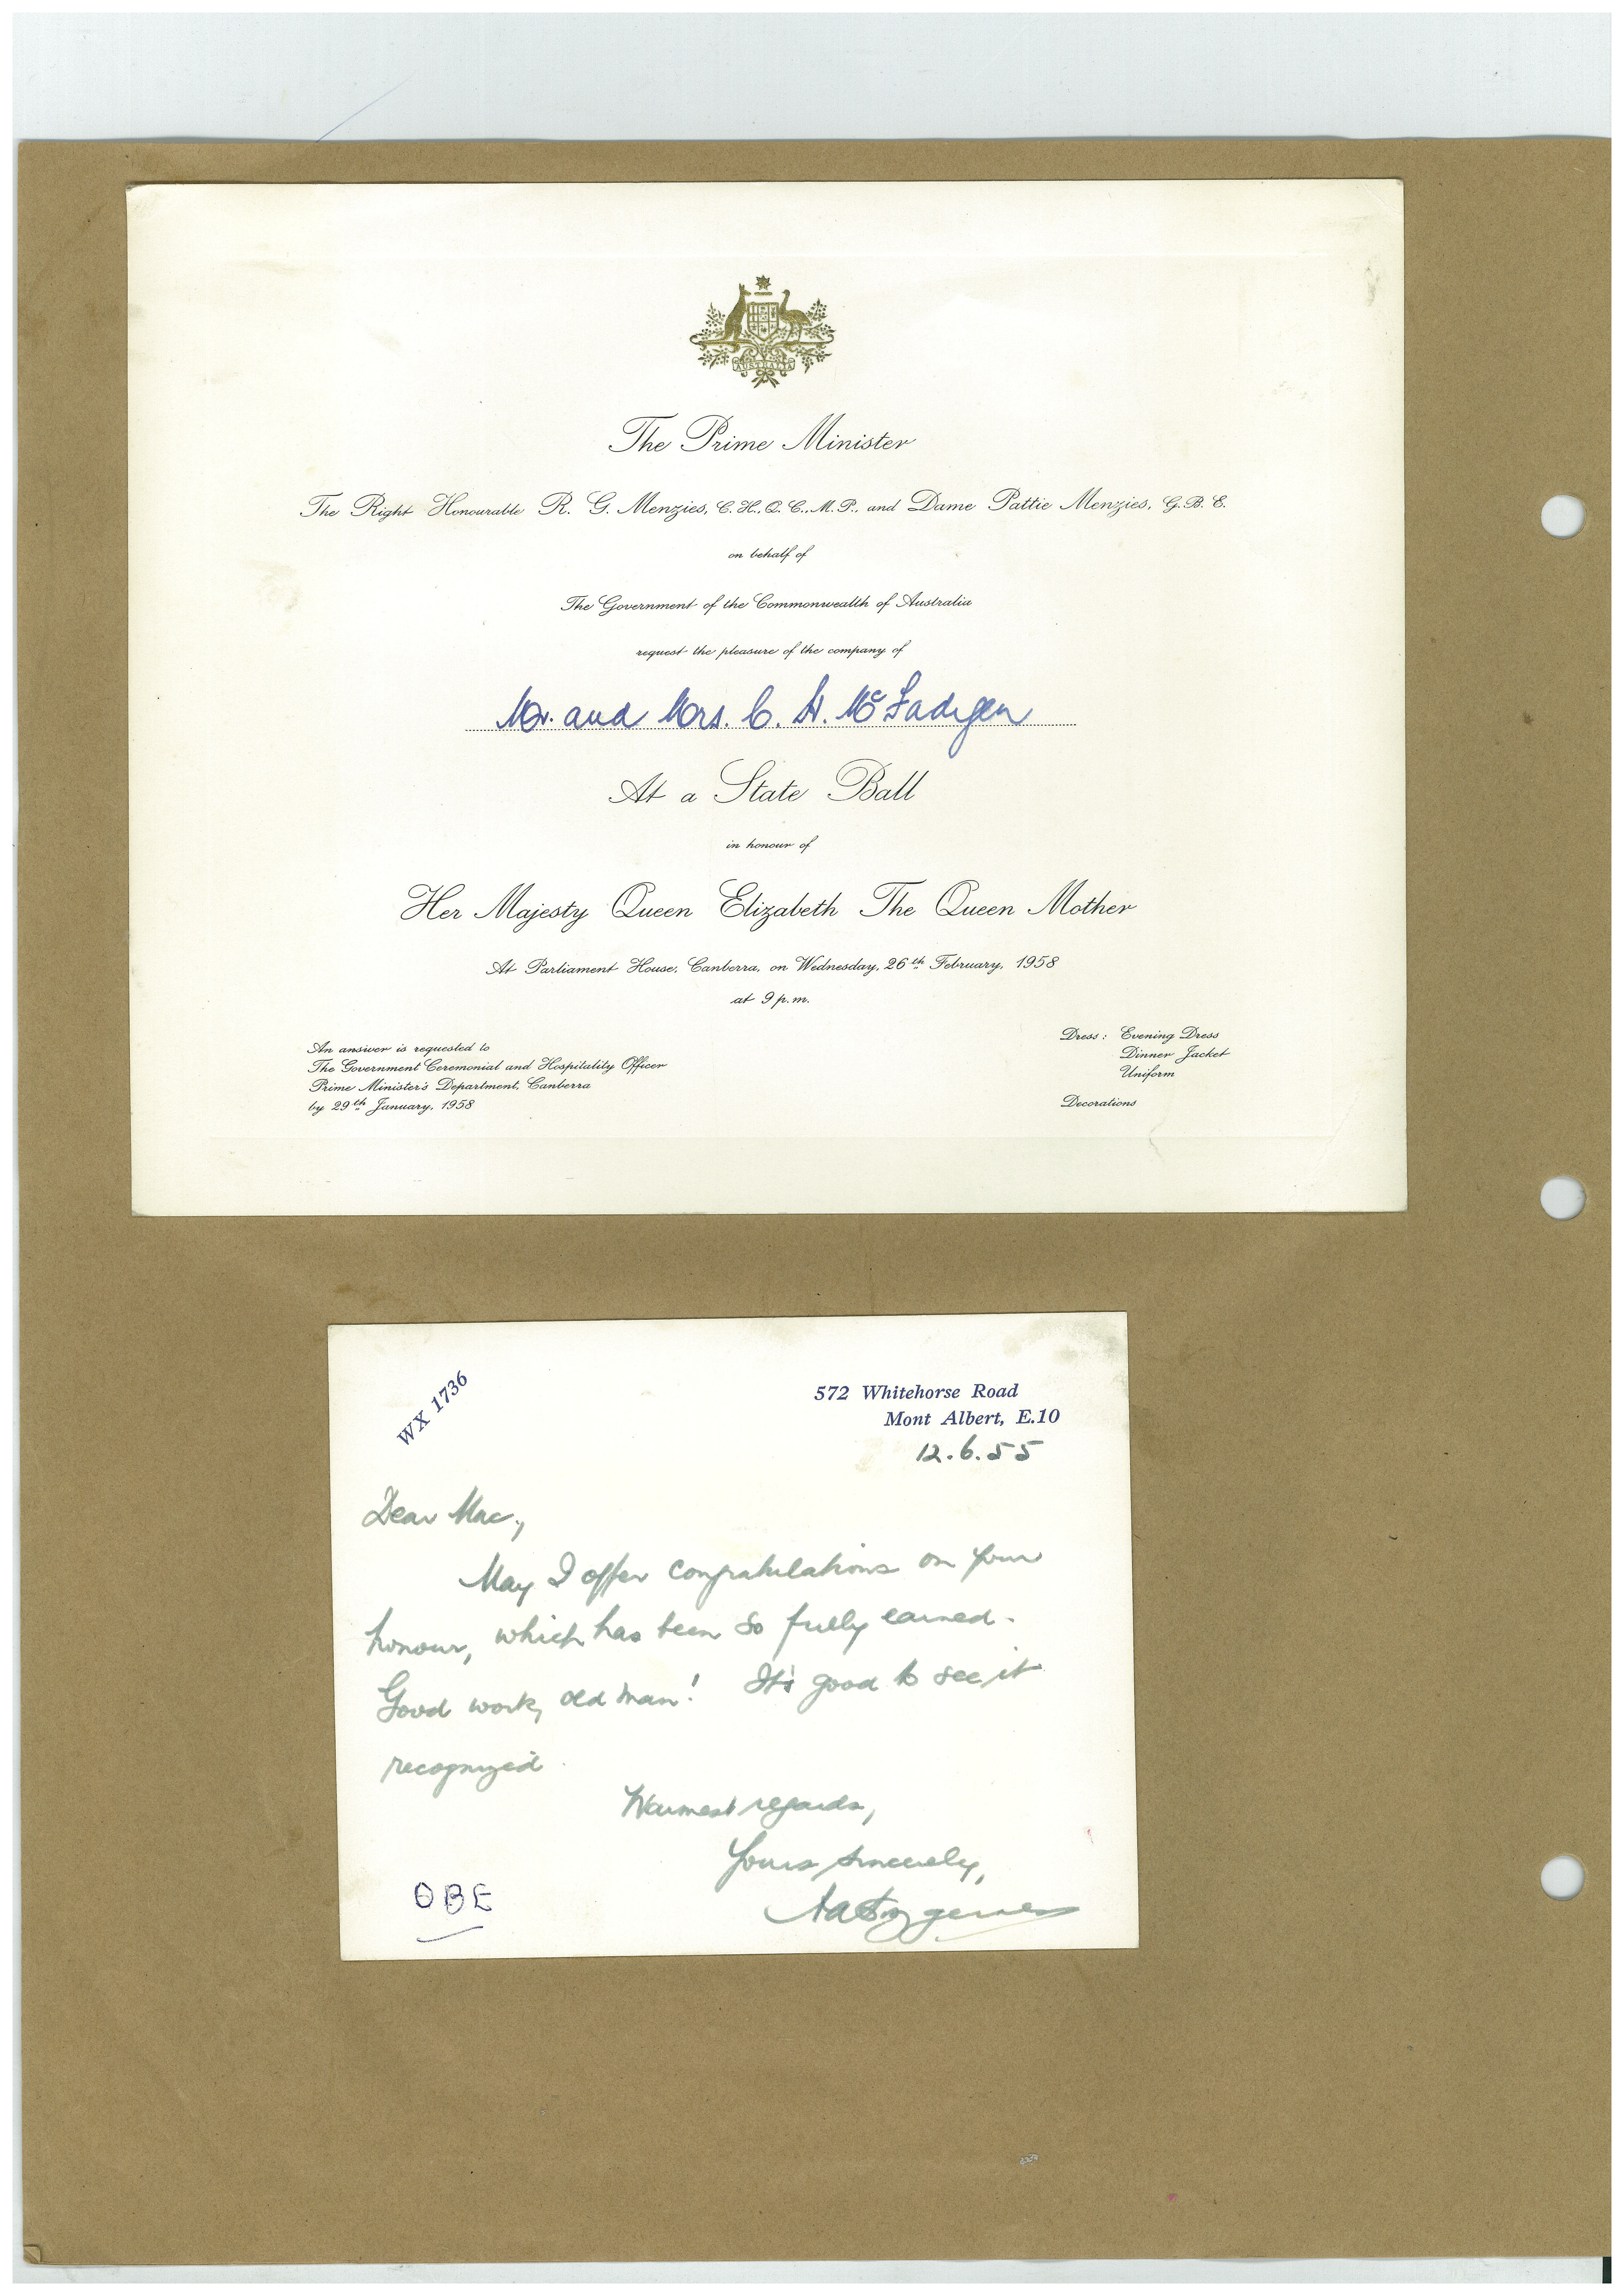 AUSTRALIA
The Prime Minister
The Right Honourable R. G. Menzies, C.H., Q.C., M.P., and Dame Pattie Menzies, G.B.E.
on behalf of
The Government of the Commonwealth of Australia
request the pleasure of the company of
Mr. and Mrs. C. H. McFadyen
At a State Ball
in honour of
Her Majesty Queen Elizabeth The Queen Mother
At Parliament House, Canberra, on Wednesday, 26th February, 1958
at 9 p.m.
An answer is requested to
The Government Ceremonial and Hospitality Officer
Prime Minister's Department, Canberra
by 29th January, 1958
Dress: Evening Dress
Dinner Jacket
Uniform
Decorations
WX 1736
572 Whitehorse Road
Mont Albert, E.10
12.6.55
Dear Mac,
May I offer congratulations on your
honour, which has been so fully earned.
Good work, old man! It's good to see it
recognized.
Warmest regards,
Yours sincerely,
OBE